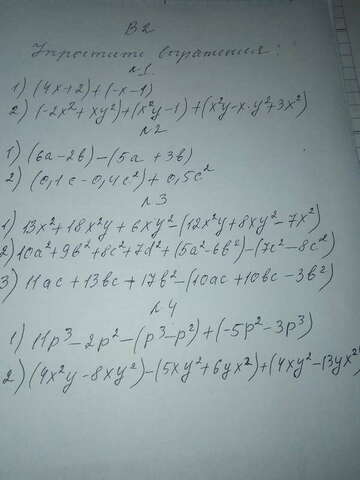 В2
Упростите выражения:
№1
1) (4x+2)+(-x-1)
2) (-2x²+xy²)+(x²y-1)+(x²y-x·y²+3x²)
№2
1) (6a-2b)-(5a+3b)
2) (0,1c-0,4c²)+0,5c²
№3
1) 13x²+18x²y+6xy²-(12x²y+8xy²-7x²)
2) 10a²+9b²+8c²+7d²+(5a²-6b²)-(7c²-8c²)
3) 11ac+13bc+17b²-(10ac+10bc-3b²)
№4
1) 11p³-2p²-(p³-p²)+(-5p²-3p³)
2) (4x²y-8xy²)-(5xy²+6yx²)+(4xy²-13yx²)